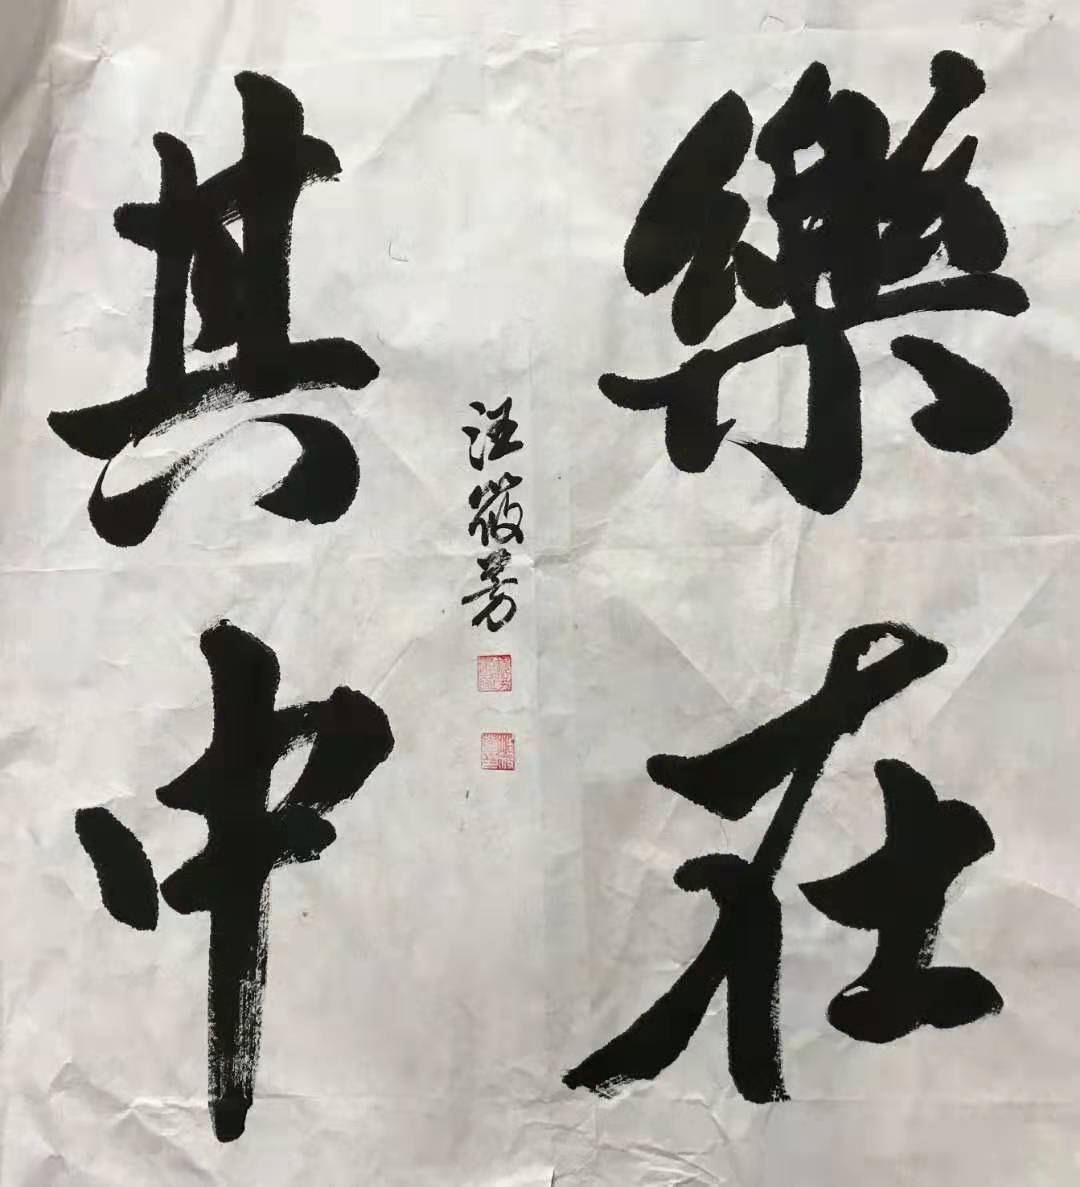 樂在
其中
汪筱芳